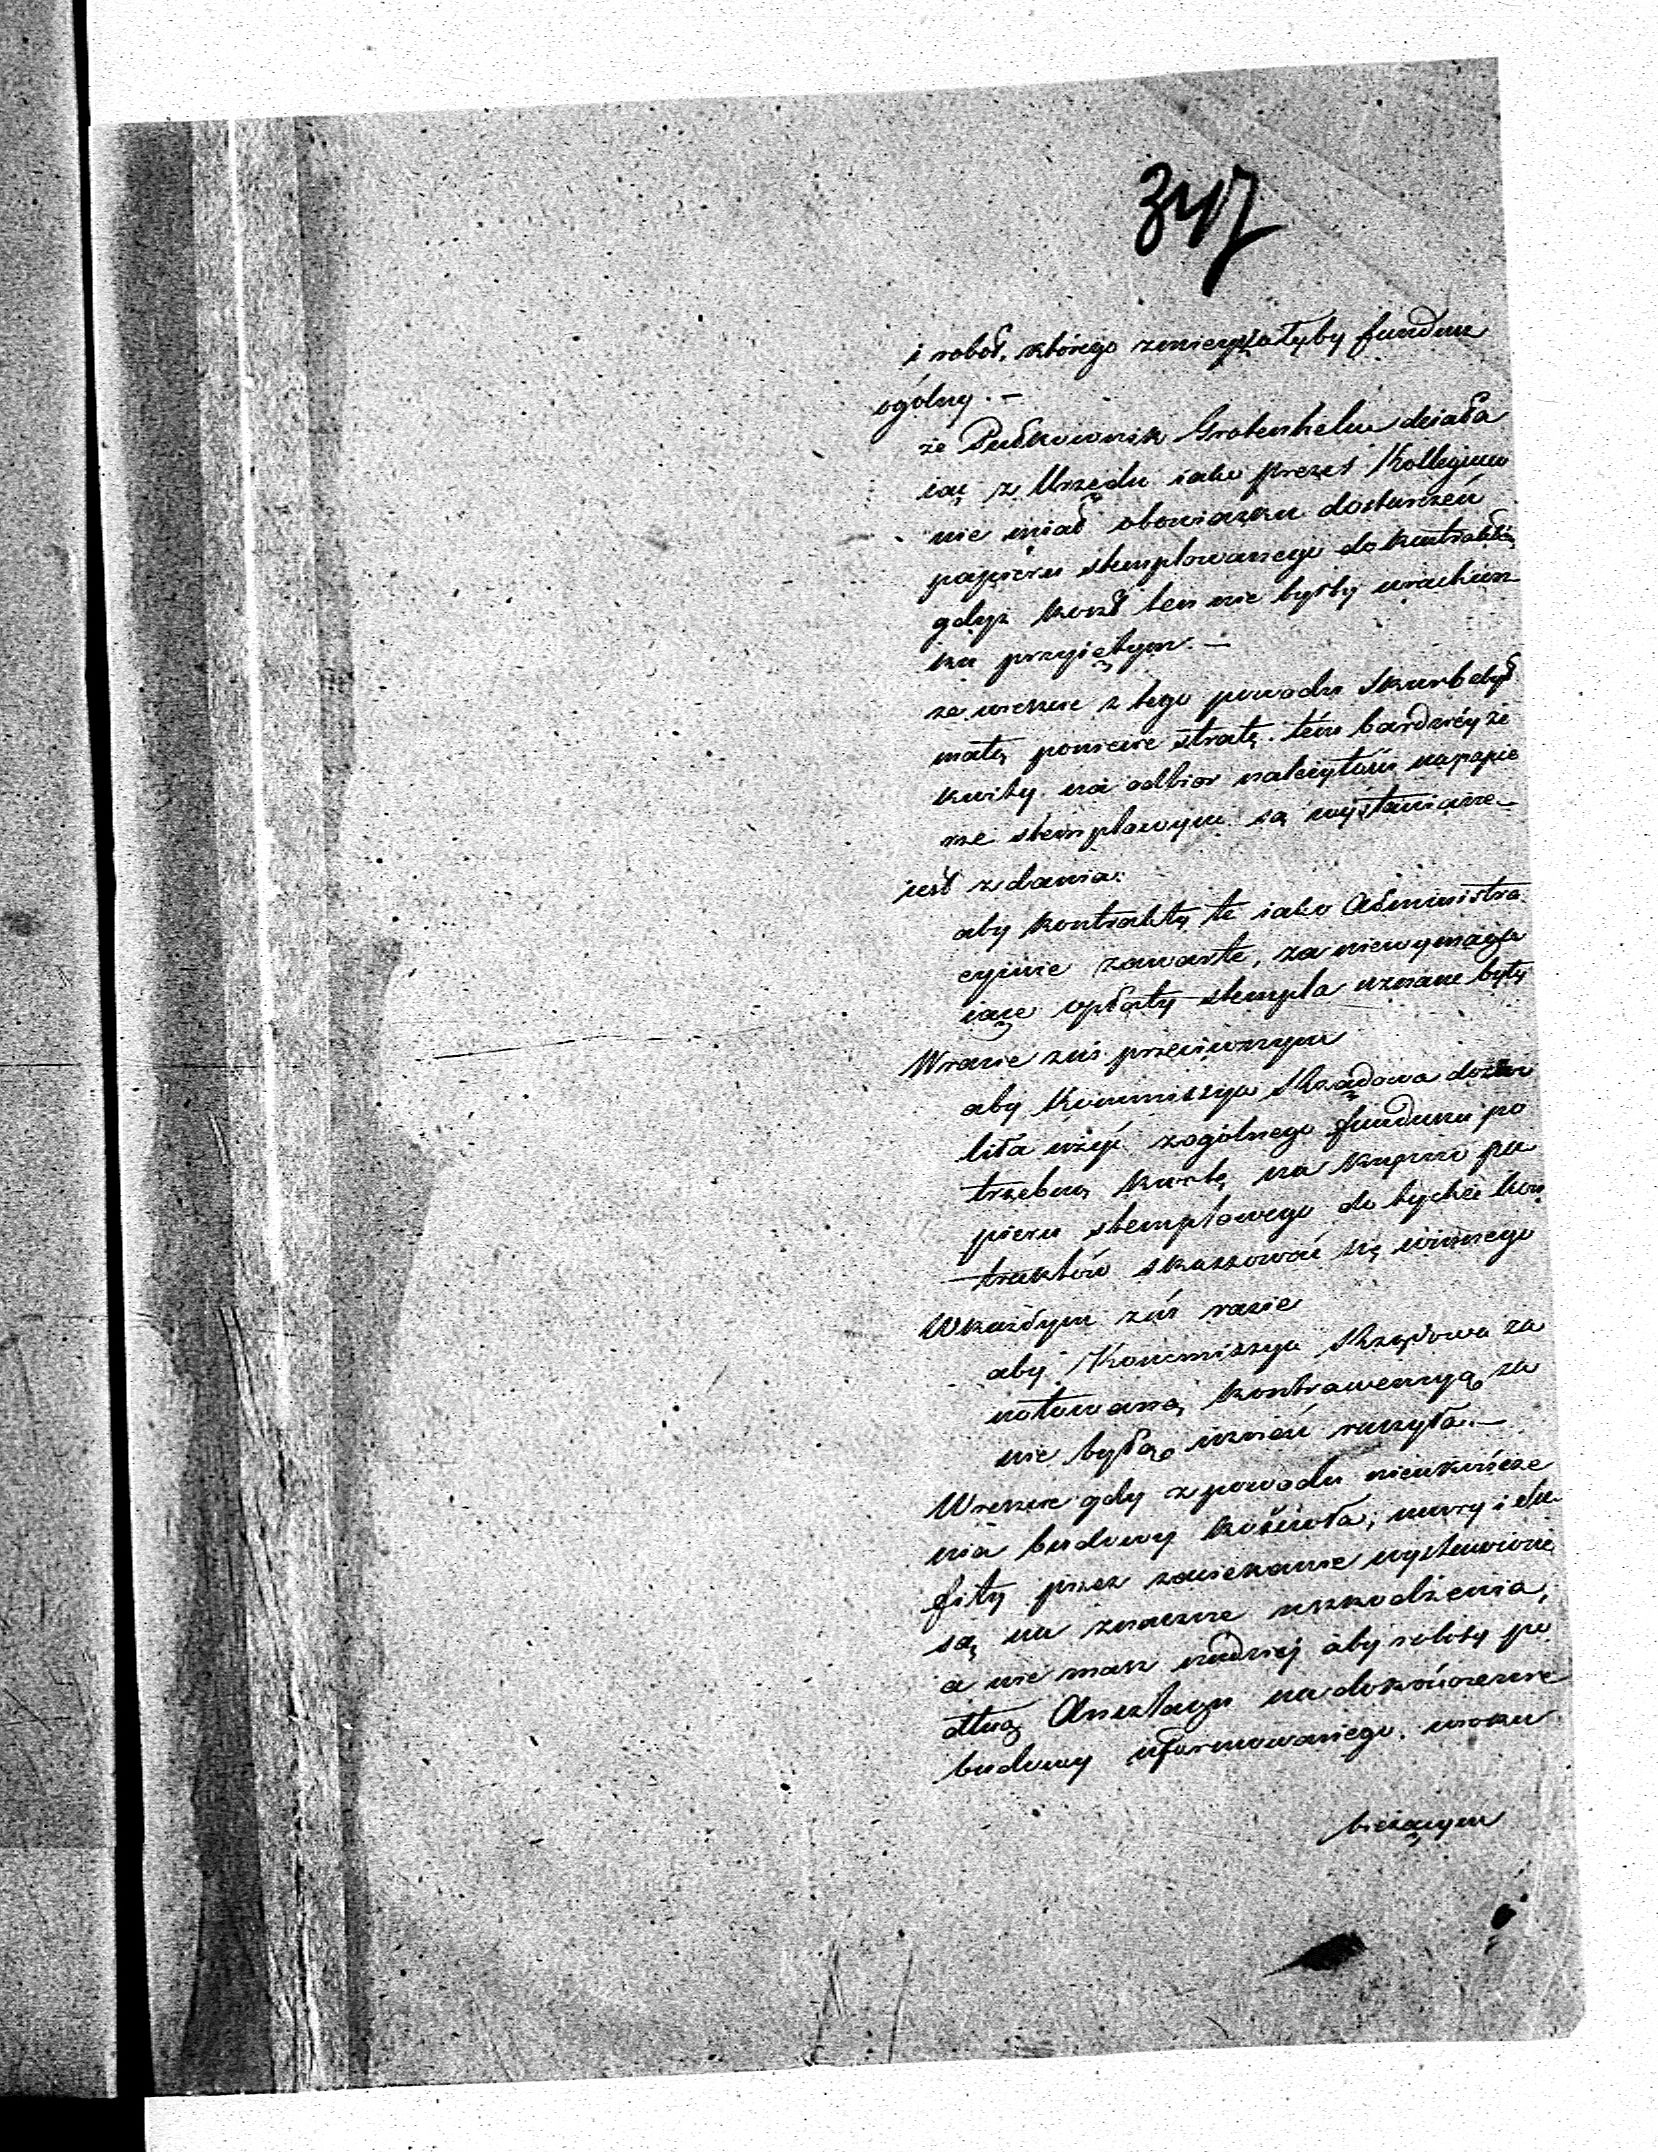 347
i robót, którego zmieyszałyby fundusz
ogólny. –
że Pułkownik Grotenhelm działa
iąc z Urzędu iako prezes Kollegium
nie miał obowiązku dostarczeń
papieru stemplowanego do kontraktów,
gdyż koszt ten nie byłby w rachun
ku przyiętym. –
że wreszcie z tego powodu Skarb był
małą poniesie stratę, tém bardziéy że
kwity na odbior należytości na papie
rze stemplowym są wystawiane –
iest zdania:
aby kontrakty te iako Administra
cyinie zawarte, za niewymaga
iące opłaty stempla uznane były
W razie zaś przeciwnym
aby Kommissya Rządowa dozwo
liła użyć z ogólnego funduszu po
trzebną kwotę na kupno pa
pieru stemplowego do tychże kon
traktów skassować się winnego
W każdym zaś razie
aby Kommissya Rządowa za
notowaną kontrawencyą za
nie byłą uznać raczyła. –
Wreszcie gdy z powodu nieukończe
nia budowy kościoła, mury i su
fity przez zaciekanie wystawione
są na znaczne uszkodzenia,
a nie masz nadziej aby roboty po
dług Anszlagu na dokończenie
budowy uformowanego, w roku
bieżącym